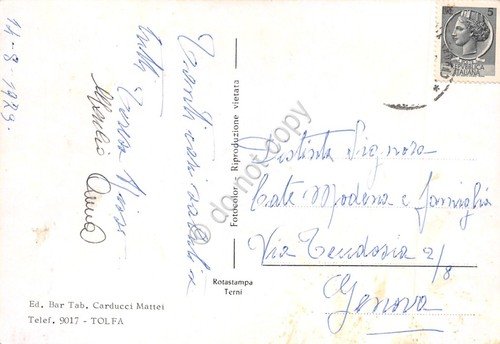 14-8-1973.
Tanti cari saluti a
tutti
Teresa
Anna
Ed. Bar Tab. Carducci Mattei
Telef. 9017 - TOLFA
Fotocolor - Riproduzione vietata
Rotastampa
Terni
do not copy
5
ITALIANA
Distinta Signora
Cate Modena e famiglia
Via Teodosia 2/8
Genova